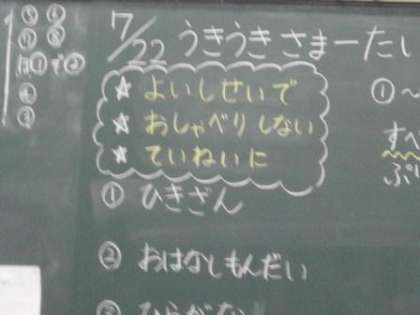 7/22 うきうきさまーたい
★ よいしせいで
★ おしゃべりしない
★ ていねいに
① ひきざん
② おはなしもんだい
③ ひらがな
① ～
すべ
ぷり